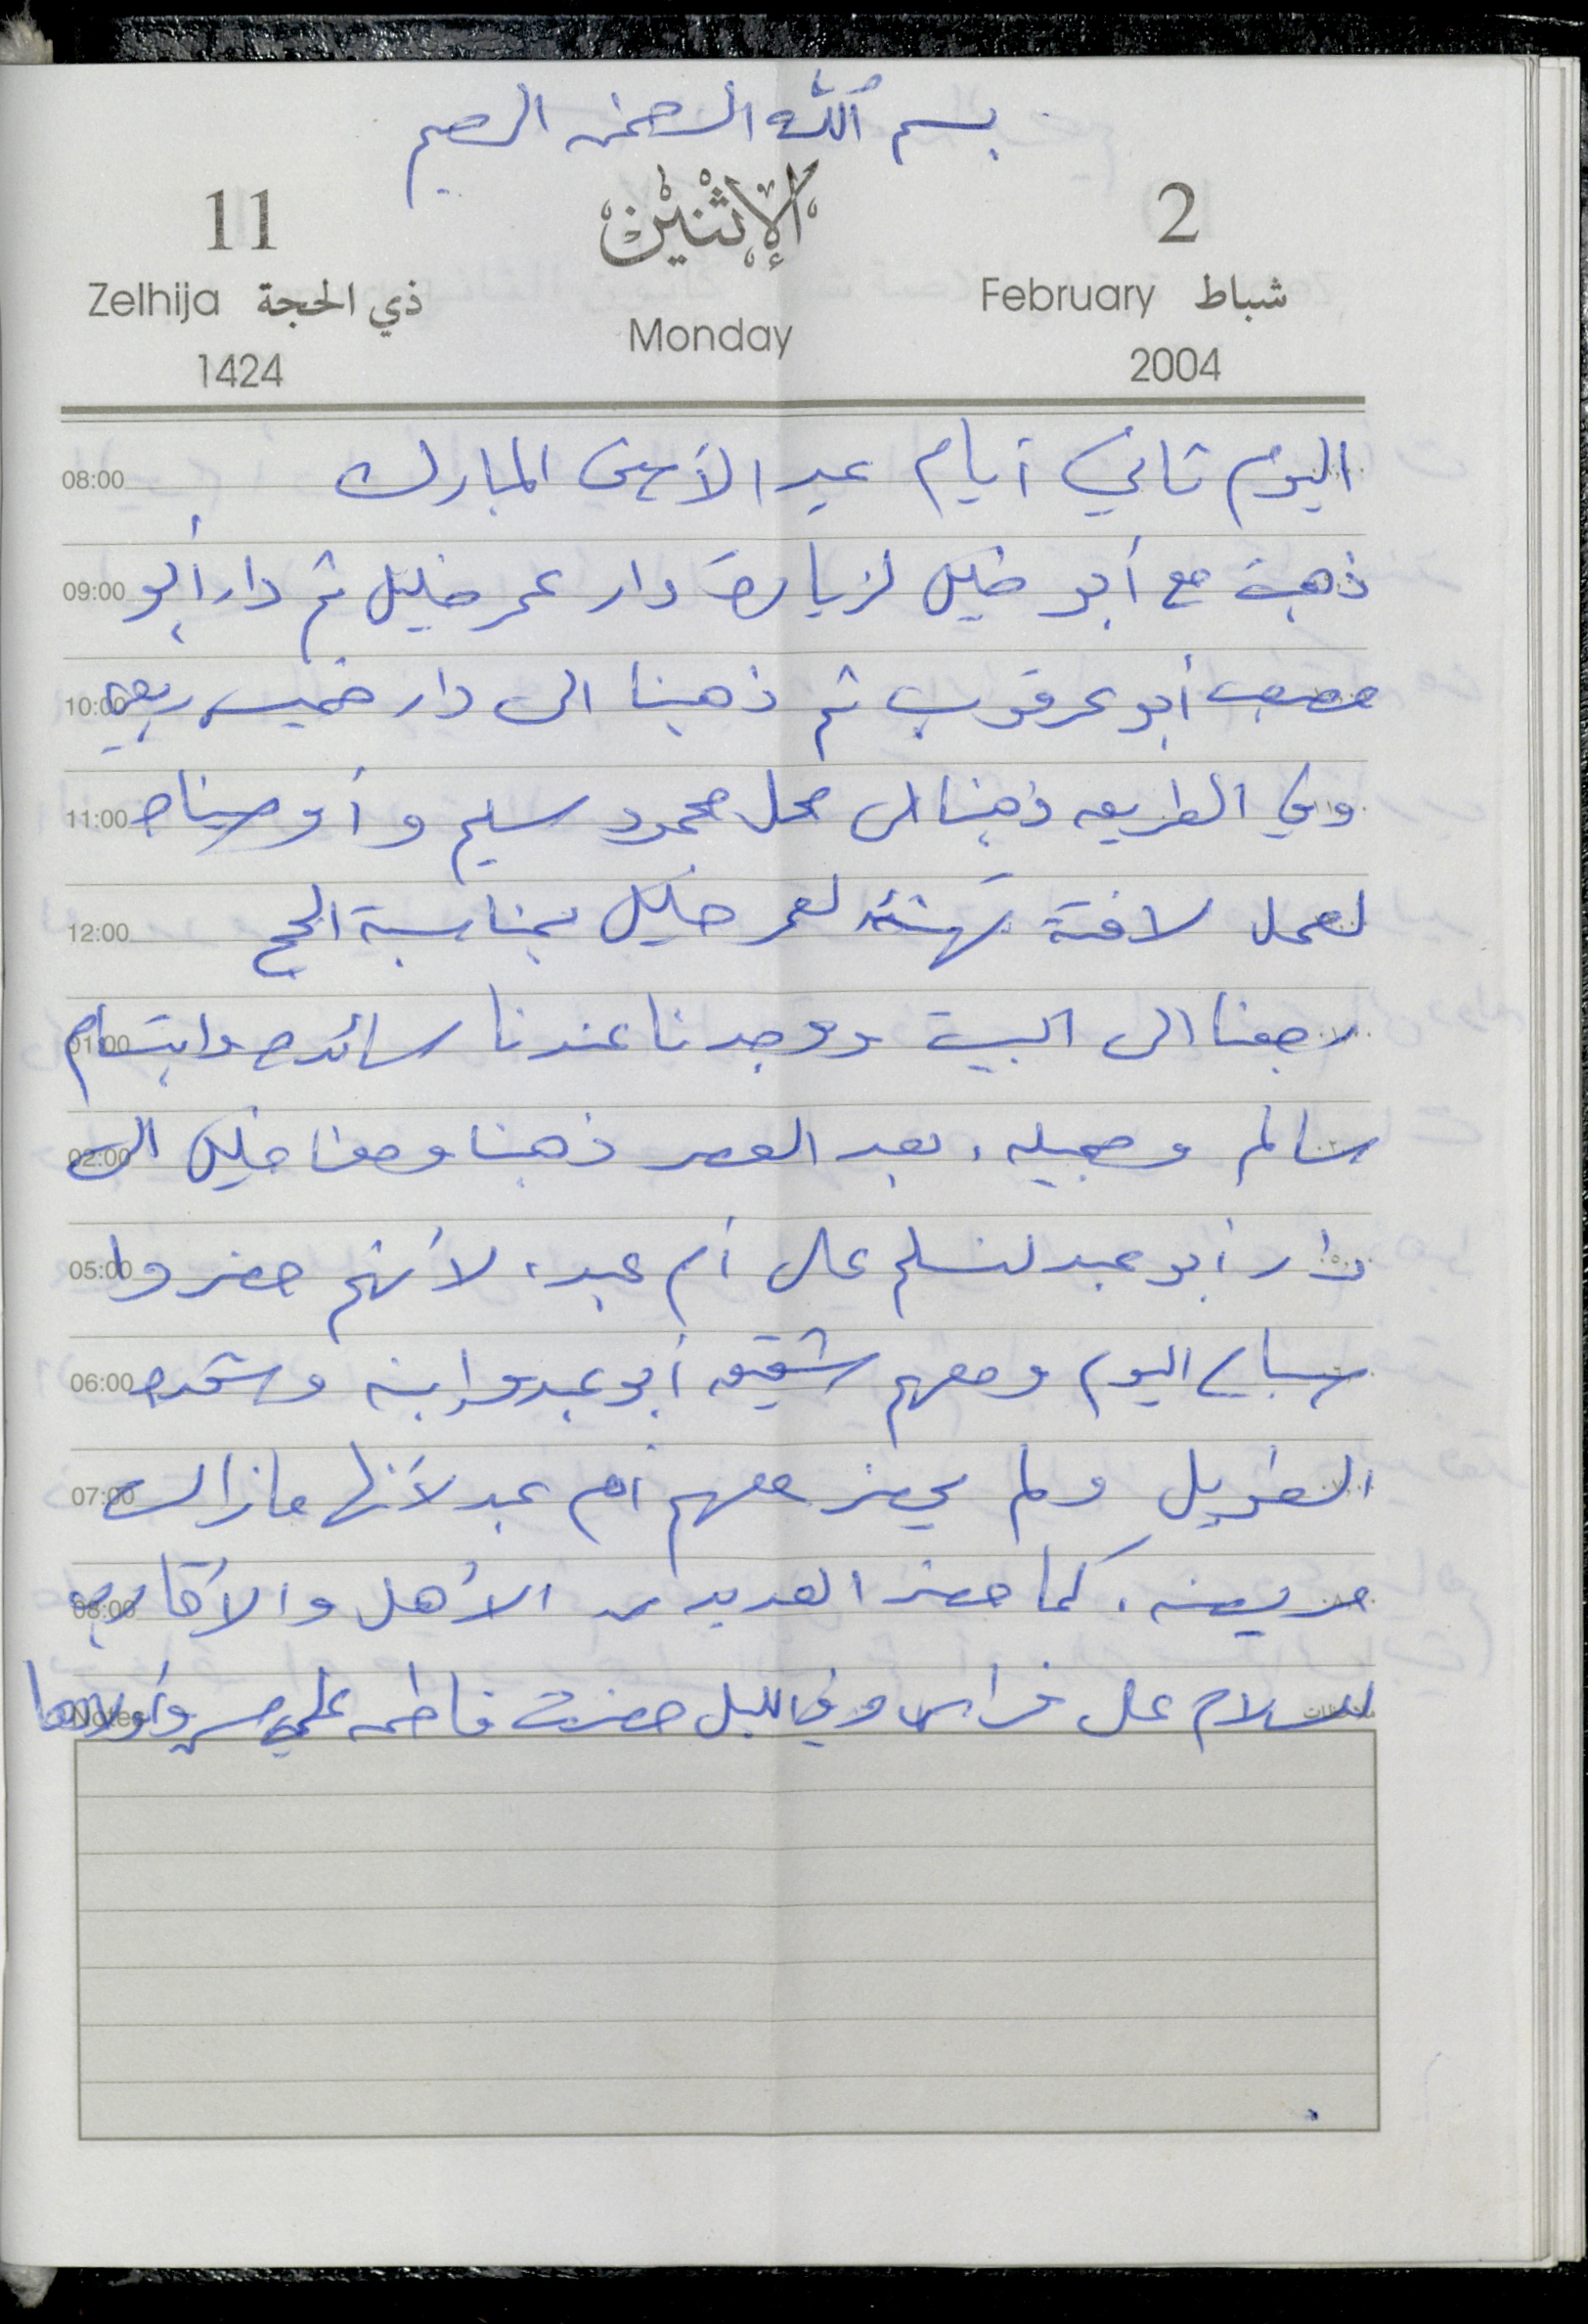 بسم الله الرحمن الرحيم
2 الإثنين 11
February شباط Monday Zelhija ذي الحجة
2004 1424
08:00 اليوم ثاني أيام عيد الأضحى المبارك
09:00 ذهبت مع أبو خليل لزيارة دار عمر خليل ثم دار أبو
10:00 مصعب أبو عرقوب ثم ذهبنا الى دار خميس ربعي
11:00 وفي الطريق ذهبنا الى محل محمود سليم وأوصيناه
12:00 لعمل لافتة تهنئة لعمر خليل بمناسبة الحج
01:00 رجعنا الى البيت ووجدنا عندنا سائده وابتسام
02:00 سالم وجميله، بعد العصر ذهبنا ومعنا خليل الى
05:00 دار أبو عبد لنسلم على أم عبد، لأنهم حضروا
06:00 صباح اليوم ومعهم شقيق أبو عبد وابنه
07:00 الطويل ولم يحضر معهم أم عبد لأنها مازالت
08:00 مريضه. كما حضر العديد من الأهل والأقارب
Notes للسلام على فراس وفي الليل حضرت فاطمه علي وأولادها ملاحظات